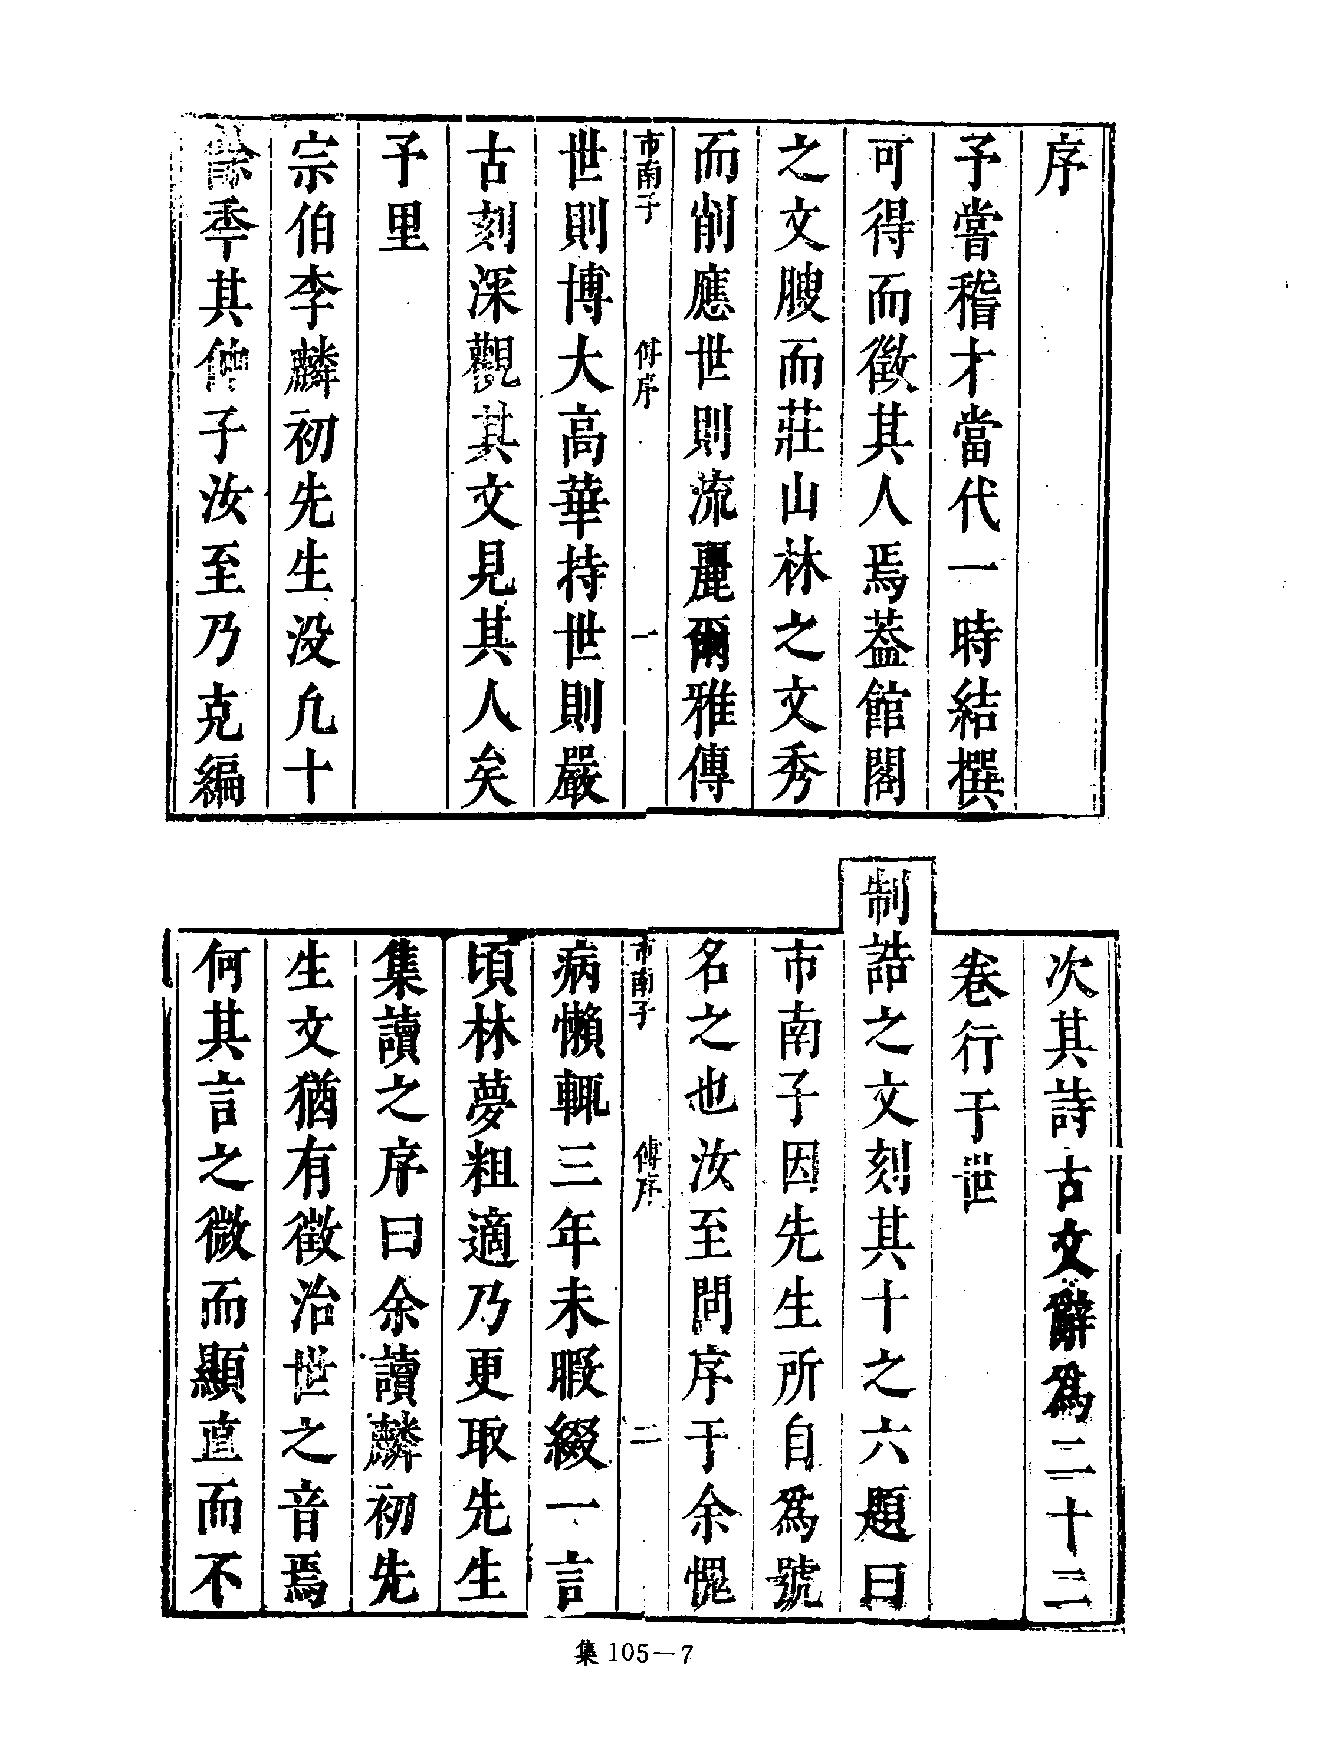 序
予嘗稽才當代一時結撰
可得而徵其人焉葢館閣
之文腴而莊山林之文秀
而削應世則流麗爾雅傳
市南子 傅序 一
世則博大高華持世則嚴
古刻深觀其文見其人矣
予里
宗伯李麟初先生没凢十
餘秊其僧子汝至乃克編
次其詩古文辭爲二十二
卷行于世
制誥之文刻其十之六題曰
市南子因先生所自爲號
名之也汝至問序于余慢
市南子 傅序 二
病懶輒三年未暇綴一言
頃林夢粗適乃更取先生
集讀之序曰余讀麟初先
生文猶有徵治世之音焉
何其言之微而顯直而不
集105—7